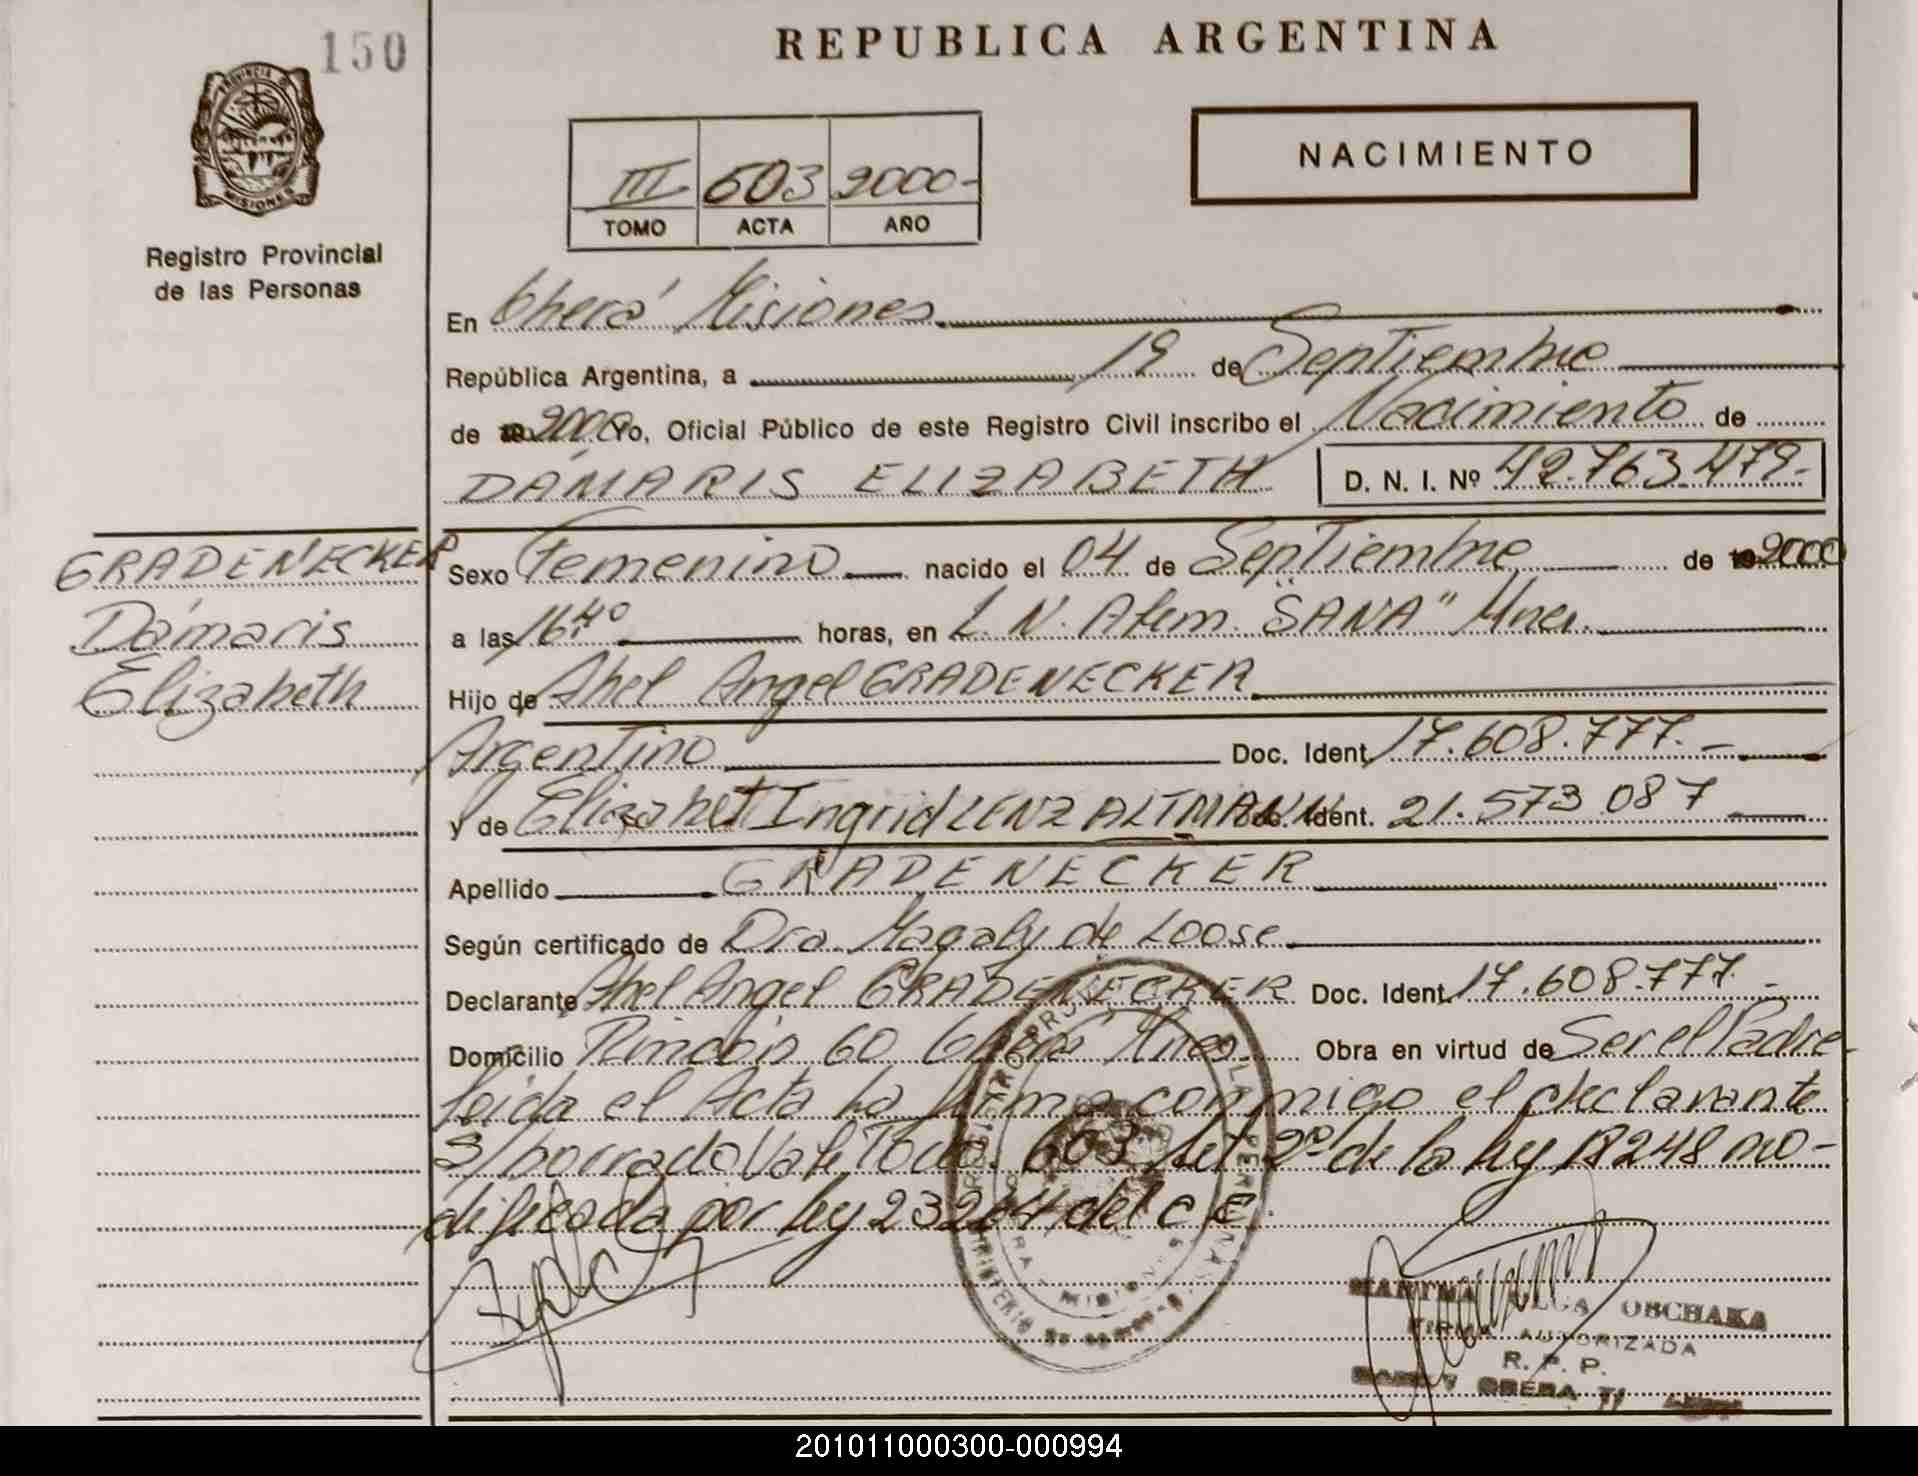 150
REPUBLICA ARGENTINA
PROVINCIA DE MISIONES
Registro Provincial
de las Personas
III 603 2000-
TOMO ACTA AÑO
NACIMIENTO
En Oberá Misiones
República Argentina, a 19 de Septiembre
de 2000 Yo, Oficial Público de este Registro Civil inscribo el Nacimiento de
DÁMARIS ELIZABETH D. N. I. Nº 42.763.479.-
GRADENECKER
Dámaris
Elizabeth
Sexo Femenino nacido el 04 de Septiembre de 2000
a las 16:40 horas, en L. N. Alem. "SANA" Mnes.
Hijo de Abel Angel GRADENECKER
Argentino Doc. Ident. 17.608.777.-
y de Elizabet Ingrid LENZ ALTMANN Doc. Ident. 21.573.087
Apellido GRADENECKER
Según certificado de Dra. Magaly de Loose
Declarante Abel Angel GRADENECKER Doc. Ident. 17.608.777.-
Domicilio Rincón 60 Oberá Mnes. Obra en virtud de Ser el Padre
Leida el Acta la firma conmigo el declarante
S/borrado Vale Todo. 603 Art 2º de la ley 18248 mo-
dificada por ley 23264 del C.C.
MARTHA OLGA OBCHAKA
FIRMA AUTORIZADA
R. P. P.
OBERA
201011000300-000994